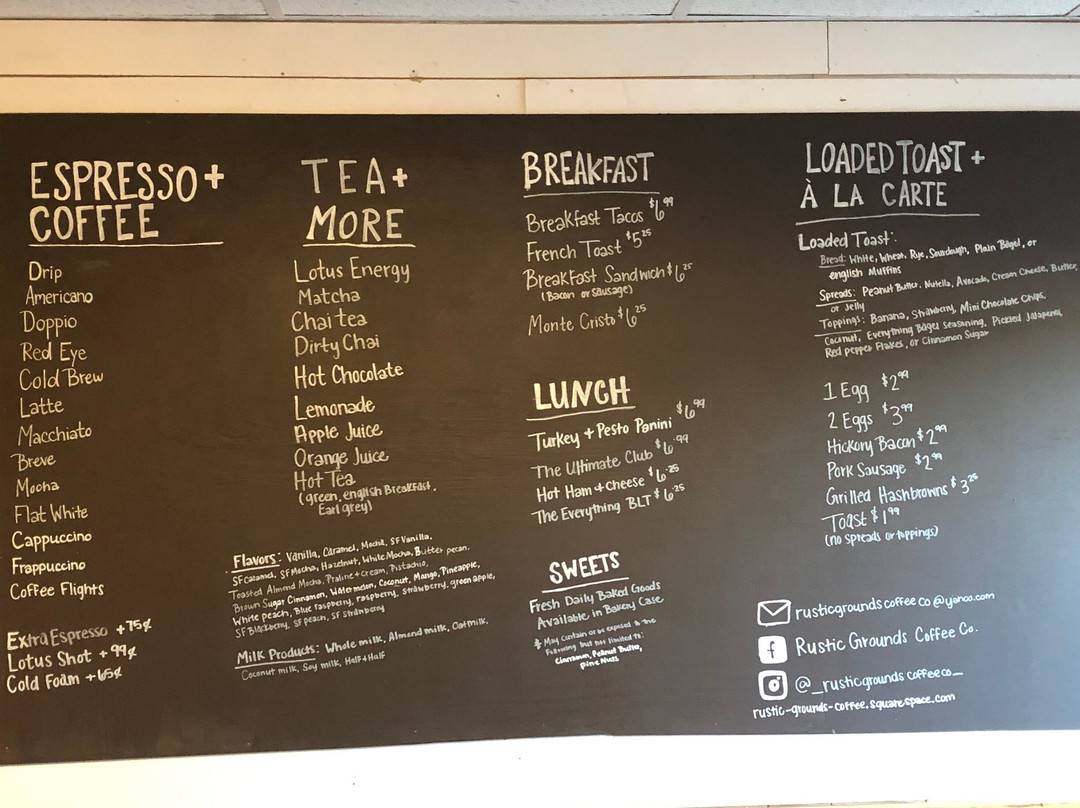 ESPRESSO+
COFFEE
Drip
Americano
Doppio
Red Eye
Cold Brew
Latte
Macchiato
Breve
Mocha
Flat White
Cappuccino
Frappuccino
Coffee Flights
Extra Espresso +75¢
Lotus Shot +99¢
Cold Foam +65¢
TEA+
MORE
Lotus Energy
Matcha
Chai tea
Dirty Chai
Hot Chocolate
Lemonade
Apple Juice
Orange Juice
Hot Tea
(green, english Breakfast,
Earl grey)
Flavors: Vanilla, Caramel, Mocha, SF Vanilla,
SF Caramel, SF Mocha, Hazelnut, White Mocha, Butter pecan,
Toasted Almond Mocha, Praline+cream, Pistachio,
Brown Sugar Cinnamon, Watermelon, Coconut, Mango, Pineapple,
White peach, Blue raspberry, raspberry, Strawberry, green apple,
SF Blackberry, SF peach, SF strawberry
Milk Products: Whole milk, Almond milk, Oatmilk,
Coconut milk, Soy milk, Half+Half
BREAKFAST
Breakfast Tacos $6.99
French Toast $5.25
Breakfast Sandwich $6.25
(Bacon or Sausage)
Monte Cristo $6.25
LUNCH
Turkey + Pesto Panini $6.99
The Ultimate Club $6.99
Hot Ham + Cheese $6.25
The Everything BLT $6.25
SWEETS
Fresh Daily Baked Goods
Available in Bakery Case
* May contain or be exposed to the
Following but not limited to:
Cinnamon, Peanut Butter,
Pine Nuts
LOADED TOAST +
À LA CARTE
Loaded Toast:
Bread: White, Wheat, Rye, Sourdough, Plain Bagel, or
english Muffins
Spreads: Peanut Butter, Nutella, Avocado, Cream Cheese, Butter,
or Jelly
Toppings: Banana, Strawberry, Mini Chocolate Chips,
Coconut, Everything Bagel Seasoning, Pickled Jalapeños,
Red pepper Flakes, or Cinnamon Sugar
1 Egg $2.99
2 Eggs $3.99
Hickory Bacon $2.99
Pork Sausage $2.99
Grilled Hashbrowns $3.25
Toast $1.99
(no spreads or toppings)
rusticgroundscoffeeco@yahoo.com
Rustic Grounds Coffee Co.
@_rusticgroundscoffeeco_
rustic-grounds-coffee.squarespace.com